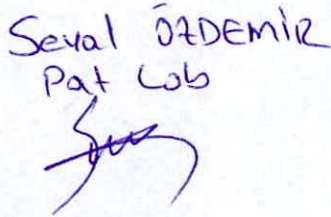 Seval ÖZDEMİR
Pat Lab